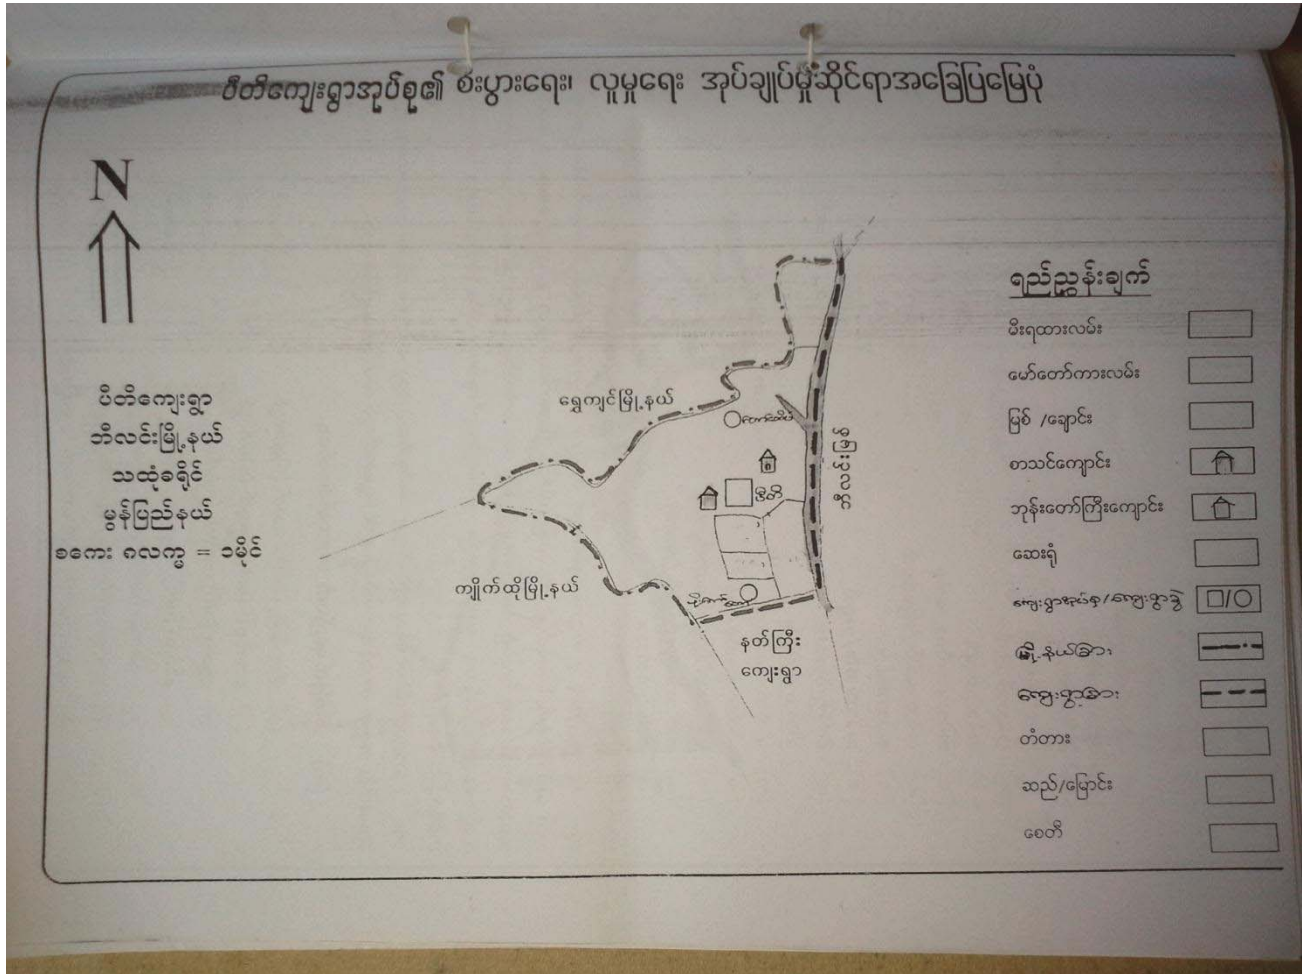 ပီတိကျေးရွာအုပ်စု၏ စီးပွားရေး၊ လူမှုရေး အုပ်ချုပ်မှုဆိုင်ရာအခြေပြမြေပုံ
N
ပီတိကျေးရွာ
ဘီလင်းမြို့နယ်
သထုံခရိုင်
မွန်ပြည်နယ်
စကေး ၈လက္မ = ၁မိုင်
ရွှေကျင်မြို့နယ်
ဘီလင်းမြစ်
ပီတိ
ကျိုက်ထိုမြို့နယ်
နတ်ကြီး
ကျေးရွာ
ရည်ညွှန်းချက်
မီးရထားလမ်း
မော်တော်ကားလမ်း
မြစ် /ချောင်း
စာသင်ကျောင်း
ဘုန်းတော်ကြီးကျောင်း
ဆေးရုံ
ကျေးရွာအုပ်စု/ကျေးရွာ
မြို့နယ်ခြား
ကျေးရွာခြား
တံတား
ဆည်/မြောင်း
စေတီ